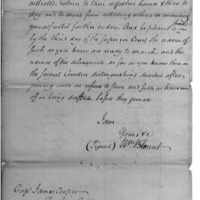 collected, return to their respective homes & there to
stay and to desist from collecting others or marching
yourself until further orders. And be pleased to send
me by the third day of the Superior Court the names of
such as you know are ready to march, and the
names of the delinquents as far as you know them in
the several Counties distinguishing deserters after
joining such as refuse to serve and such as have run
off on being drafted, before they joined
I am
Yours &c
(Signed) Wm. Blount
Capt. James Cooper